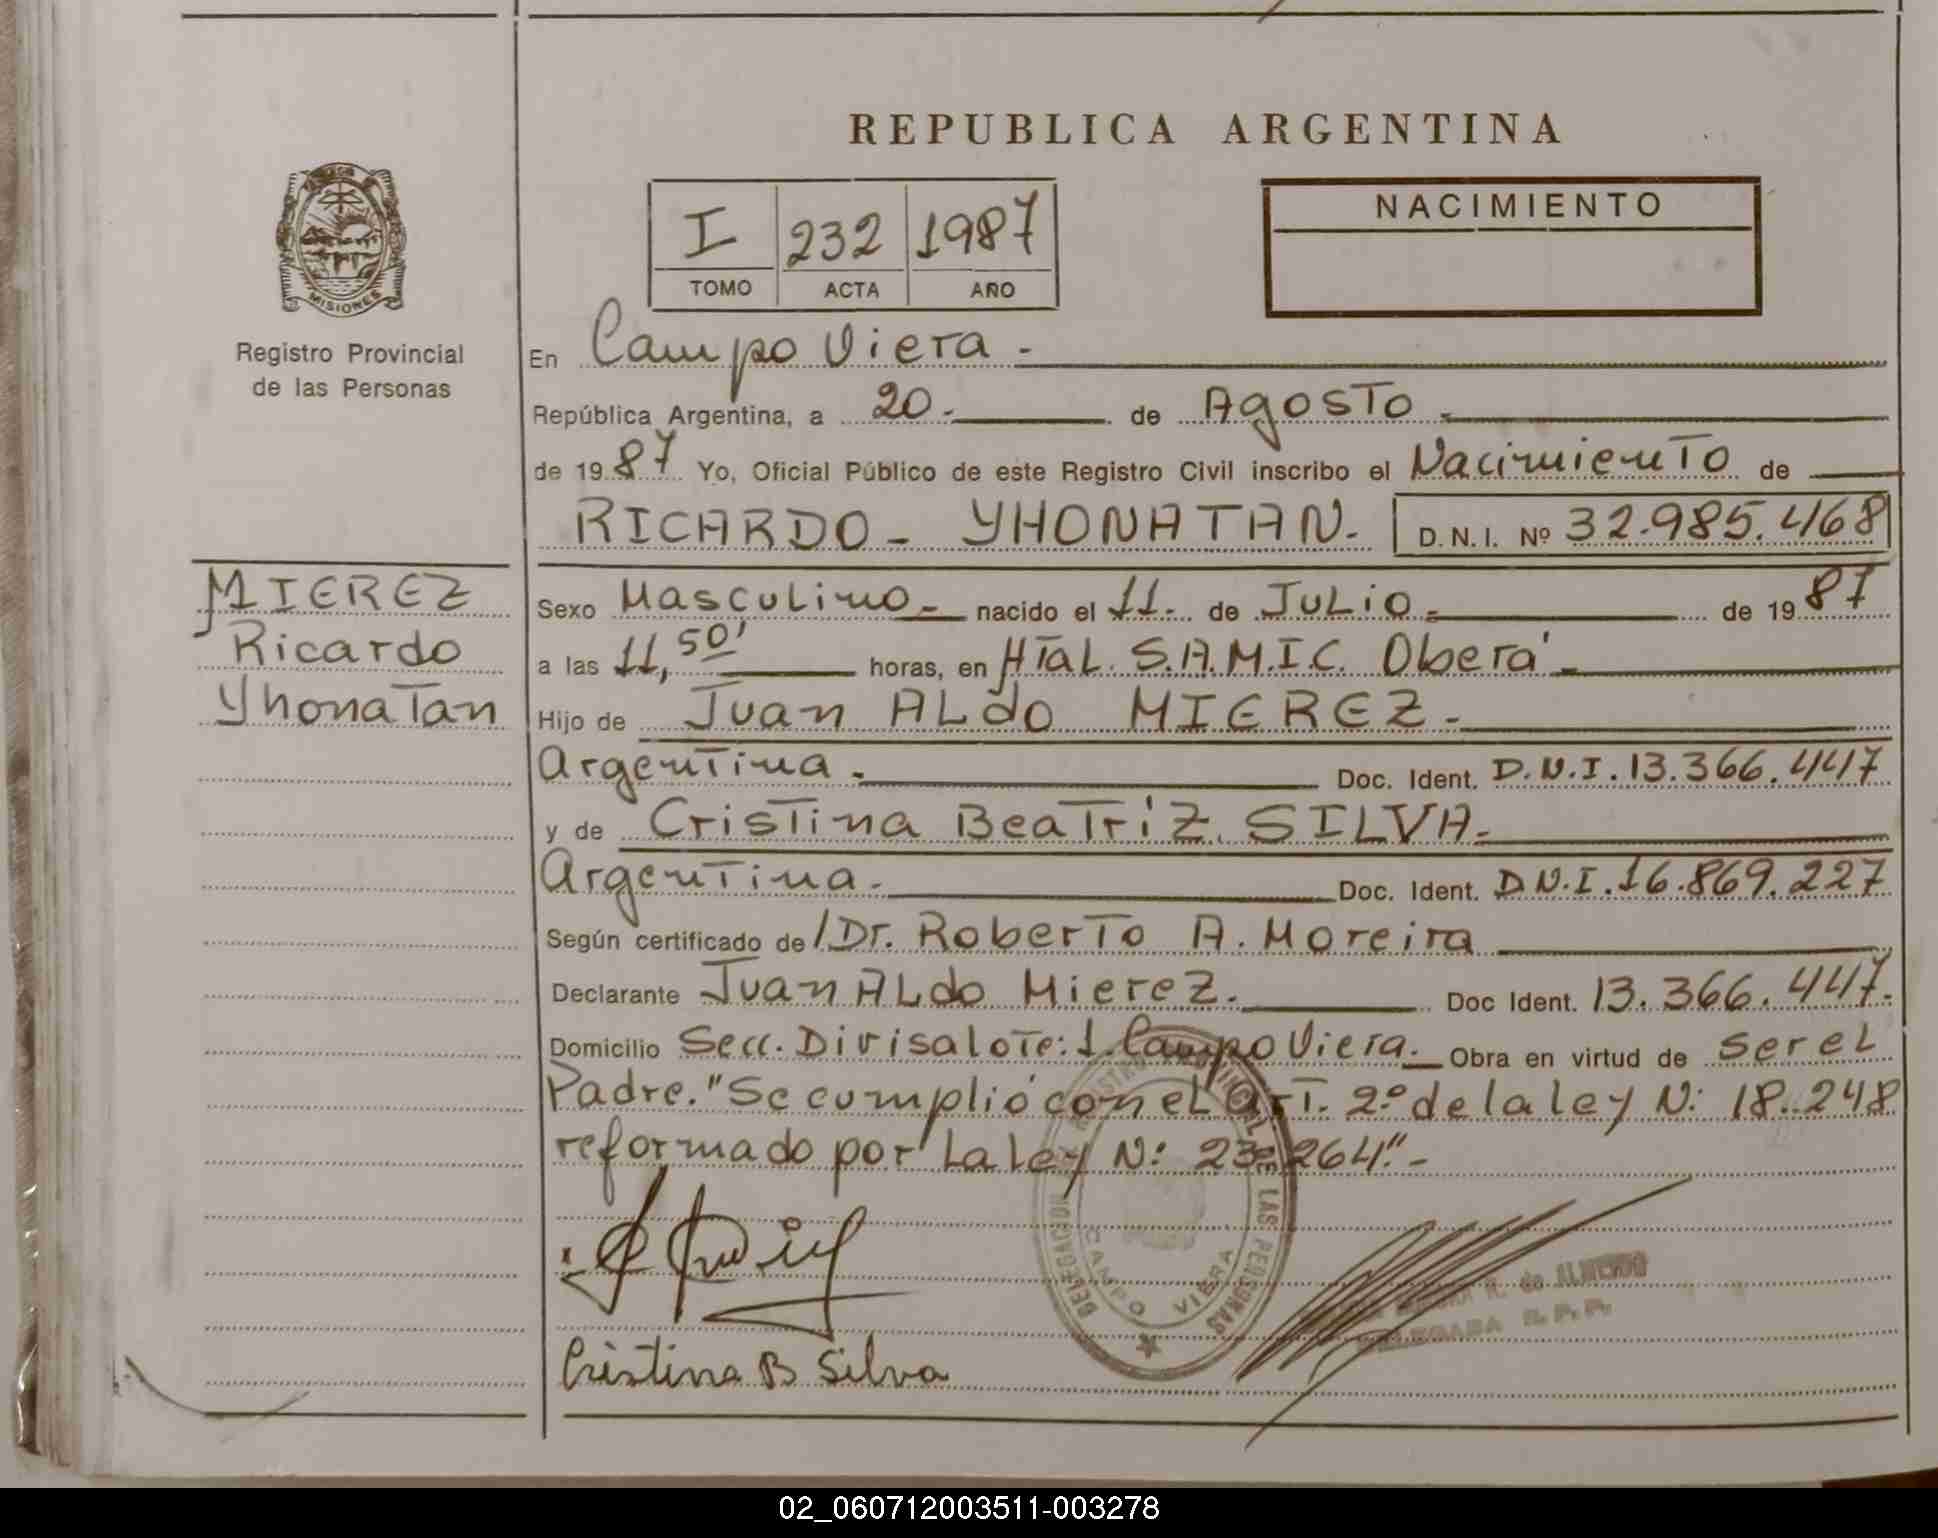 REPUBLICA ARGENTINA
MISIONES
Registro Provincial
de las Personas
I 232 1987
TOMO ACTA AÑO
NACIMIENTO
En Campo Viera -
República Argentina, a 20.- de Agosto -
de 1987 Yo, Oficial Público de este Registro Civil inscribo el Nacimiento de
RICARDO - YHONATAN. D.N.I. Nº 32.985.468
MIEREZ
Ricardo
Yhonatan
Sexo Masculino - nacido el 11.- de Julio.- de 1987
a las 11,50' horas, en Htal. S.A.M.I.C. Oberá -
Hijo de Juan Aldo MIEREZ -
Argentina - Doc. Ident. D.N.I. 13.366.447
y de Cristina Beatríz SILVA.-
Argentina - Doc. Ident. D.N.I. 16.869.227
Según certificado de / Dr. Roberto A. Moreira
Declarante Juan Aldo Mierez. Doc Ident. 13.366.447.
Domicilio Secc. Divisalote: 1. Campo Viera. Obra en virtud de ser el
Padre. "Se cumplió con el art. 2º de la ley N: 18.248
reformado por la ley N: 23.264."-
DELEGACION DEL REGISTRO PROVINCIAL DE LAS PERSONAS
CAMPO VIERA
R. de
DELEGADA R. P. P.
Cristina B Silva
02_060712003511-003278